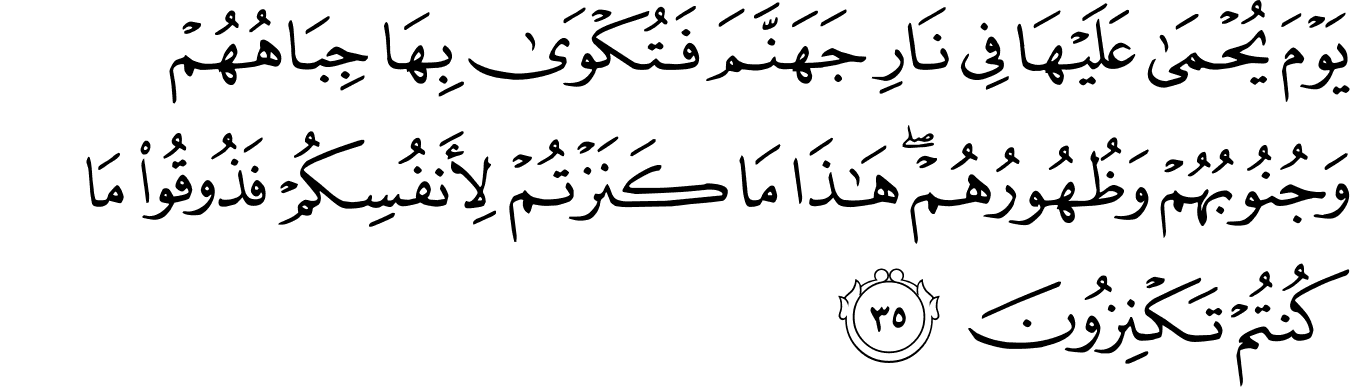 يَوْمَ يُحْمَىٰ عَلَيْهَا فِي نَارِ جَهَنَّمَ فَتُكْوَىٰ بِهَا جِبَاهُهُمْ
وَجُنُوبُهُمْ وَظُهُورُهُمْ ۖ هَٰذَا مَا كَنَزْتُمْ لِأَنفُسِكُمْ فَذُوقُوا۟ مَا
كُنتُمْ تَكْنِزُونَ ٣٥